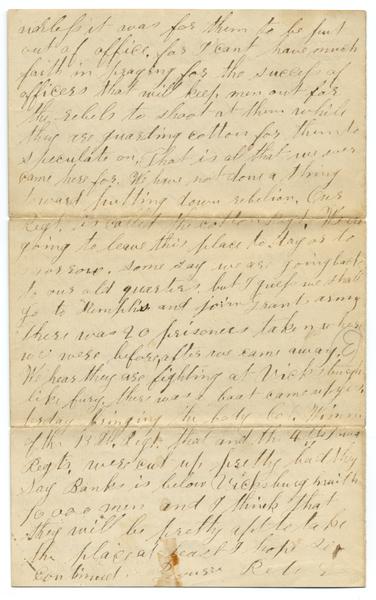 unless it was for them to be put
out of office, for I cant have much
faith in praying for the success of
officers that will keep men out for
the rebels to shoot at them while
they are guarding cotton for them to
speculate on, that is al that we ever
came here for. We have not done a thing
towart putting down rebelion. Our
Regt. is called the cotton Regt.
going to leave this place to day or to
morrow. some say we are going back
to our old quarters, but I guess we shall
go to Memphis and join Grant army
there was 20 prisoners taken where
we were before after we came away.
We hear they are fighting at Vicksburgh
like fury, there was a boat came up yes
terday bringing the body co.
of the 13th Regt. that and the 4th
Regts were cut up pretty bad they
Say Banks is below Vicksburg with
10,000 men and I think that
they will be pretty apt to take
the place at least I hope so
continued.